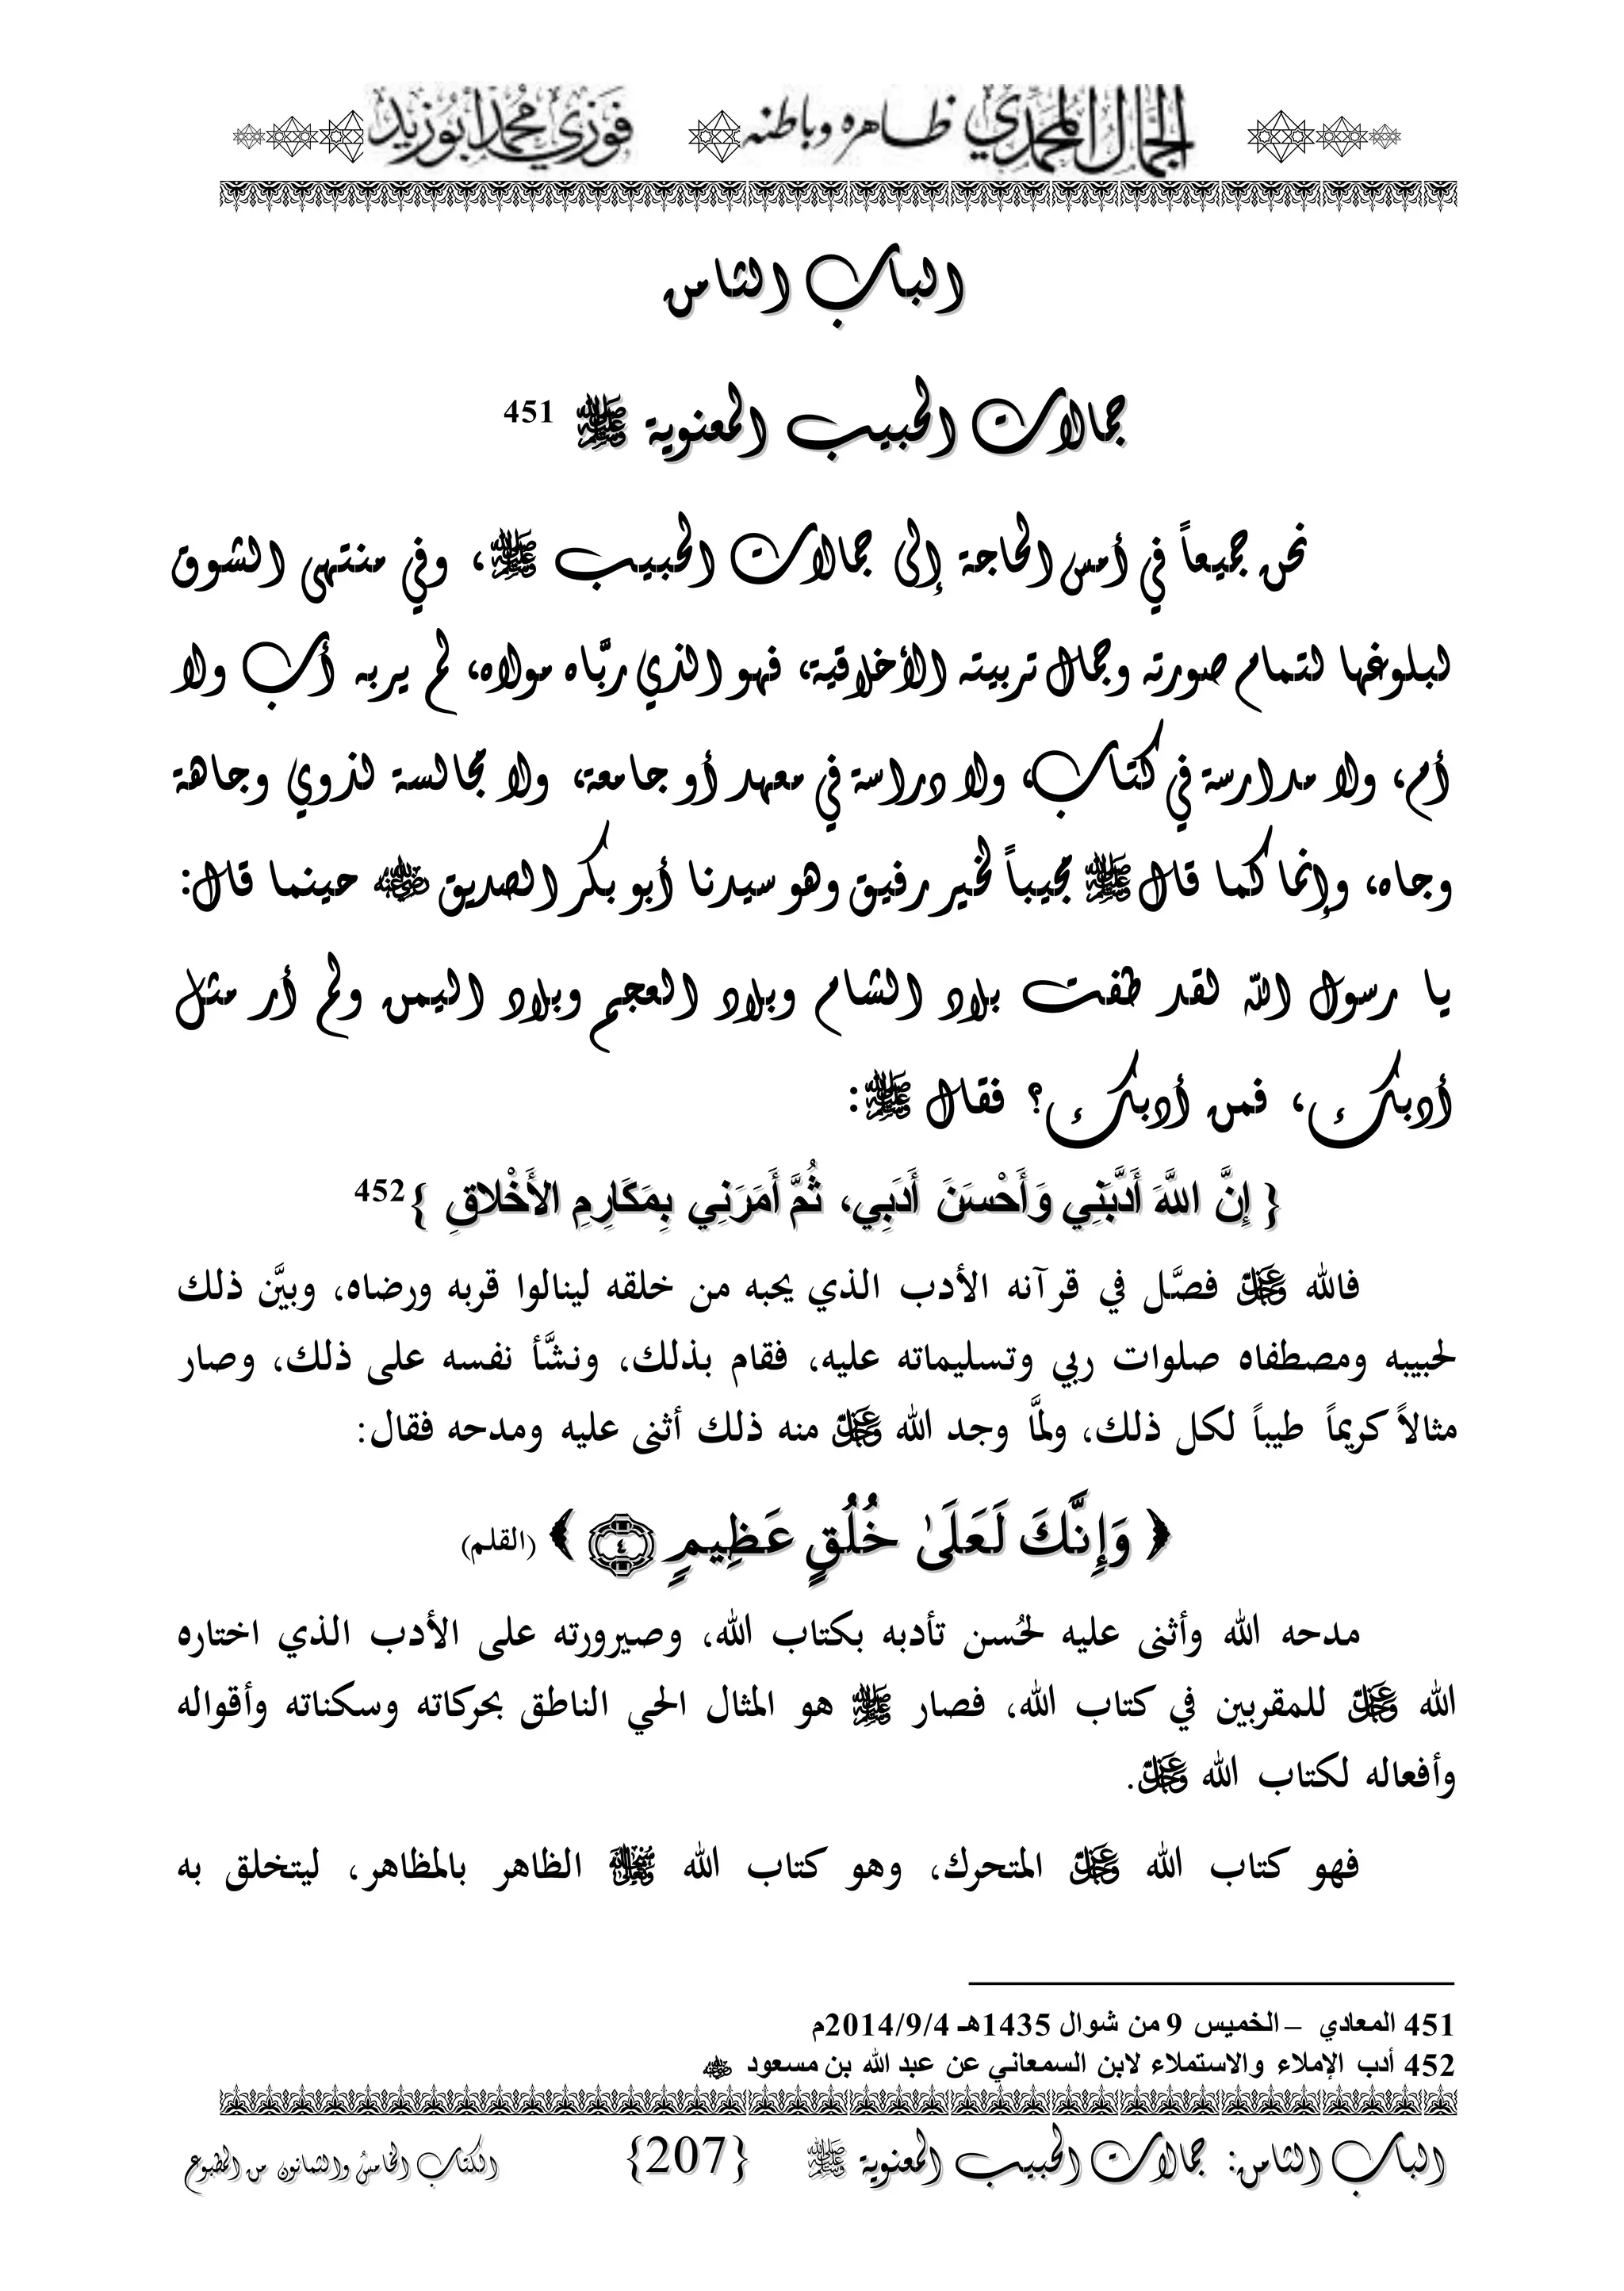 الجمال المحمدي ظاهره وباطنه فوزي محمد أبوزيد
الباب الثامن
جمالات الحبيب المعنوية ﷺ 451
نحن جميعاً في أمس الحاجة إلى جمالات الحبيب ﷺ، وفي منتهى الشوق
لبلوغها لتمام صورته وجمال تربيته الأخلاقية، فهو الذي ربَّاه مولاه، لم يربه أب ولا
أم، ولا مدارسة في كتاب، ولا دراسة في معهد أو جامعة، ولا مجالسة لذوي وجاهة
وجاه، وإنما كما قال ﷺ مجيباً لخير رفيق وهو سيدنا أبو بكر الصديق رضي الله عنه حينما قال:
يا رسول الله لقد طفت بلاد الشام وبلاد العجم وبلاد اليمن ولم أر مثل
أدبك، فمن أدبك؟ فقال ﷺ:
{ إِنَّ اللَّهَ أَدَّبَنِي وَأَحْسَنَ أَدَبِي، ثُمَّ أَمَرَنِي بِمَكَارِمِ الأَخْلاقِ }452
فالله عز وجل فصَّل في قرآنه الأدب الذي يحبه من خلقه لينالوا قربه ورضاه، وبيَّن ذلك
لحبيبه ومصطفاه صلوات ربي وتسليماته عليه، فقام بذلك، ونشَّأ نفسه على ذلك، وصار
مثالاً كريماً طيباً لكل ذلك، ولمَّا وجد الله عز وجل منه ذلك أثنى عليه ومدحه فقال:
﴿ وَإِنَّكَ لَعَلَىٰ خُلُقٍ عَظِيمٍ ٤ ﴾ (القلم)
مدحه الله وأثنى عليه لحُسن تأدبه بكتاب الله، وصيرورته على الأدب الذي اختاره
الله عز وجل للمقربين في كتاب الله، فصار ﷺ هو المثال الحي الناطق بحركاته وسكناته وأقواله
وأفعاله لكتاب الله عز وجل.
فهو كتاب الله عز وجل المتحرك، وهو كتاب الله سبحانه وتعالى الظاهر بالمظاهر، ليتخلق به
451 المعادي – الخميس 9 من شوال 1435هـ 2014/9/4م
452 أدب الإملاء والاستملاء لابن السمعاني عن عبد الله بن مسعود رضي الله عنه
الباب الثامن: جمالات الحبيب المعنوية ﷺ {207} الكتاب الخامس والثمانون من المطبوع